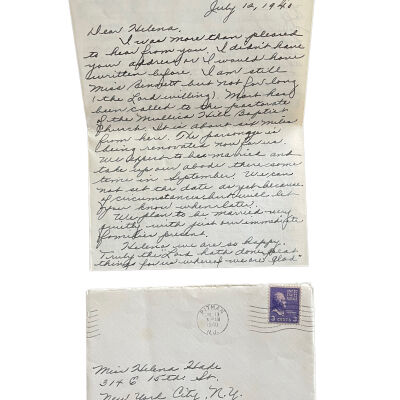 July 12, 1940
Dear Helena,
I was more than pleased
to hear from you. I didn't have
your address or I would have
written before. I am still
Miss Bennett but not for long
(the Lord willing). Most has
been called to the pastorate
of the Mullica Hill Baptist
Church. It is about six miles
from here. The parsonage is
being renovated now for us.
We expect to be married and
take up our abode there some
time in September. We can
not set the date as yet because
of circumstances but will let
you know when later.
We plan to be married very
quietly with just our immediate
families present.
Helena we are so happy.
Truly the Lord hath done great
things for us whereof we are glad"
PITMAN
1940
N.J.
3 CENTS 3
Miss Helena Hade
314 E 15th St.
New York City, N.Y.